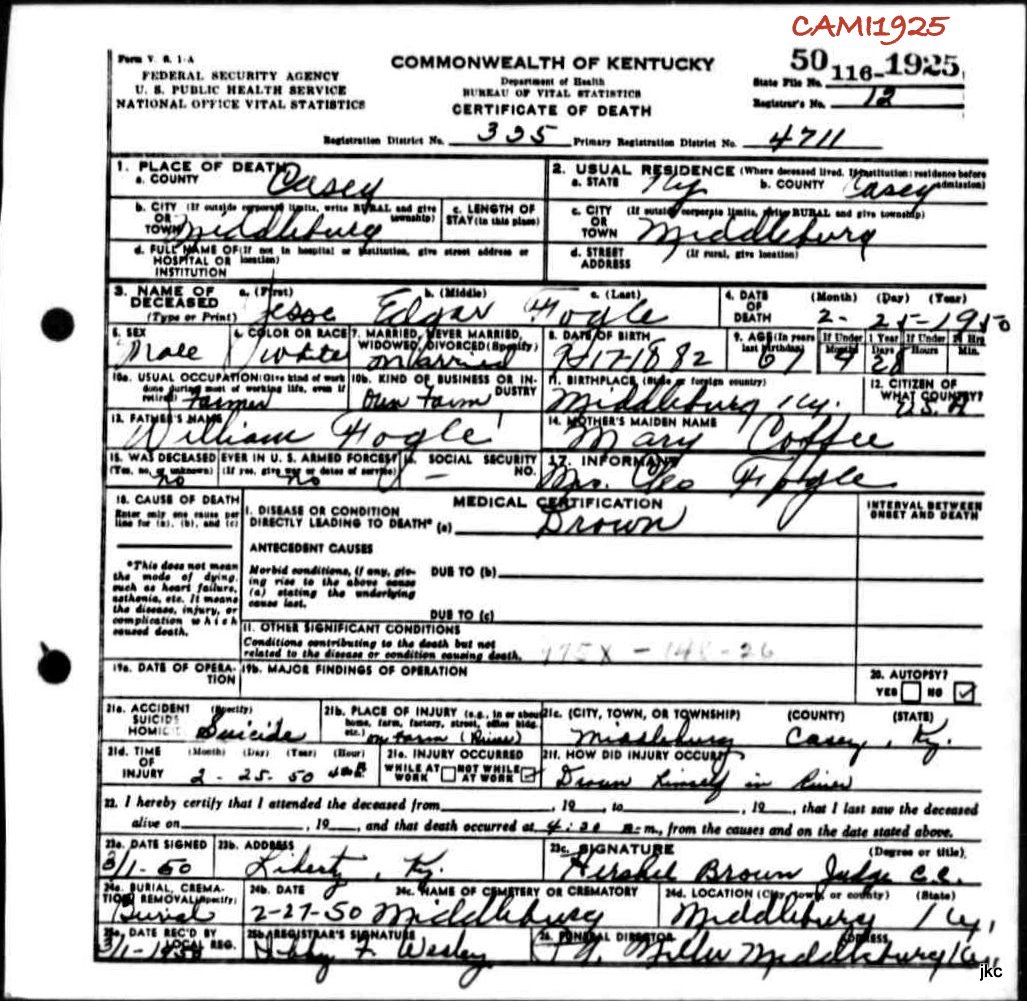 CAMI1925
Form V. S. 1-A
FEDERAL SECURITY AGENCY
U. S. PUBLIC HEALTH SERVICE
NATIONAL OFFICE VITAL STATISTICS
COMMONWEALTH OF KENTUCKY
Department of Health
BUREAU OF VITAL STATISTICS
CERTIFICATE OF DEATH
State File No. 50 116-1925
Registrar's No. 12
Registration District No. 335 Primary Registration District No. 4711
1. PLACE OF DEATH
a. COUNTY Casey
2. USUAL RESIDENCE (Where deceased lived. If institution: residence before admission)
a. STATE Ky b. COUNTY Casey
b. CITY (If outside corporate limits, write RURAL and give township)
OR
TOWN Middleburg
c. LENGTH OF STAY (in this place)
c. CITY (If outside corporate limits, write RURAL and give township)
OR
TOWN Middleburg
d. FULL NAME OF (If not in hospital or institution, give street address or location)
HOSPITAL OR
INSTITUTION
d. STREET ADDRESS (If rural, give location)
3. NAME OF DECEASED (Type or Print)
a. (First) Jesse b. (Middle) Edgar c. (Last) Fogle
4. DATE OF DEATH (Month) (Day) (Year)
2- 25-1950
5. SEX Male
6. COLOR OR RACE White
7. MARRIED, NEVER MARRIED, WIDOWED, DIVORCED (Specify) Married
8. DATE OF BIRTH 9-17-1882
9. AGE (In years last birthday) 67 If Under 1 Year Months Days 28 If Under 24 Hrs Hours Min.
10a. USUAL OCCUPATION (Give kind of work done during most of working life, even if retired) Farmer
10b. KIND OF BUSINESS OR INDUSTRY Own Farm
11. BIRTHPLACE (State or foreign country) Middleburg Ky.
12. CITIZEN OF WHAT COUNTRY? U.S.A
13. FATHER'S NAME William Fogle
14. MOTHER'S MAIDEN NAME Mary Coffee
15. WAS DECEASED EVER IN U. S. ARMED FORCES?
(Yes, no, or unknown) (If yes, give war or dates of service)
no no
16. SOCIAL SECURITY NO. —
17. INFORMANT Mrs. Geo Fogle
18. CAUSE OF DEATH
Enter only one cause per line for (a), (b), and (c)
MEDICAL CERTIFICATION
INTERVAL BETWEEN ONSET AND DEATH
I. DISEASE OR CONDITION
DIRECTLY LEADING TO DEATH* (a) Drown
ANTECEDENT CAUSES
*This does not mean the mode of dying, such as heart failure, asthenia, etc. It means the disease, injury, or complication which caused death.
Morbid conditions, if any, giving rise to the above cause (a) stating the underlying cause last.
DUE TO (b)
DUE TO (c)
II. OTHER SIGNIFICANT CONDITIONS
Conditions contributing to the death but not related to the disease or condition causing death.
975X - 148-26
19a. DATE OF OPERATION
19b. MAJOR FINDINGS OF OPERATION
20. AUTOPSY?
YES NO ✓
21a. ACCIDENT (Specify)
SUICIDE
HOMICIDE Suicide
21b. PLACE OF INJURY (e.g., in or about home, farm, factory, street, office bldg. etc.) on farm (River)
21c. (CITY, TOWN, OR TOWNSHIP) (COUNTY) (STATE)
Middleburg Casey, Ky.
21d. TIME OF INJURY (Month) (Day) (Year) (Hour)
2 - 25 - 50
21e. INJURY OCCURRED
WHILE AT WORK NOT WHILE AT WORK ✓
21f. HOW DID INJURY OCCUR?
Drown himself in River
22. I hereby certify that I attended the deceased from , 19 to , 19 , that I last saw the deceased
alive on , 19 , and that death occurred at 4:20 m., from the causes and on the date stated above.
23a. DATE SIGNED 3/1-50
23b. ADDRESS Liberty, Ky.
23c. SIGNATURE (Degree or title)
Hershel Brown Judge C.C.
24a. BURIAL, CREMATION REMOVAL (Specify) Burial
24b. DATE 2-27-50
24c. NAME OF CEMETERY OR CREMATORY Middleburg
24d. LOCATION (City, town, or county) (State)
Middleburg Ky.
25a. DATE REC'D BY LOCAL REG. 3/1-1950
25b. REGISTRAR'S SIGNATURE F. Wesley
26. FUNERAL DIRECTOR ADDRESS
Miller Middleburg Ky.
jkc